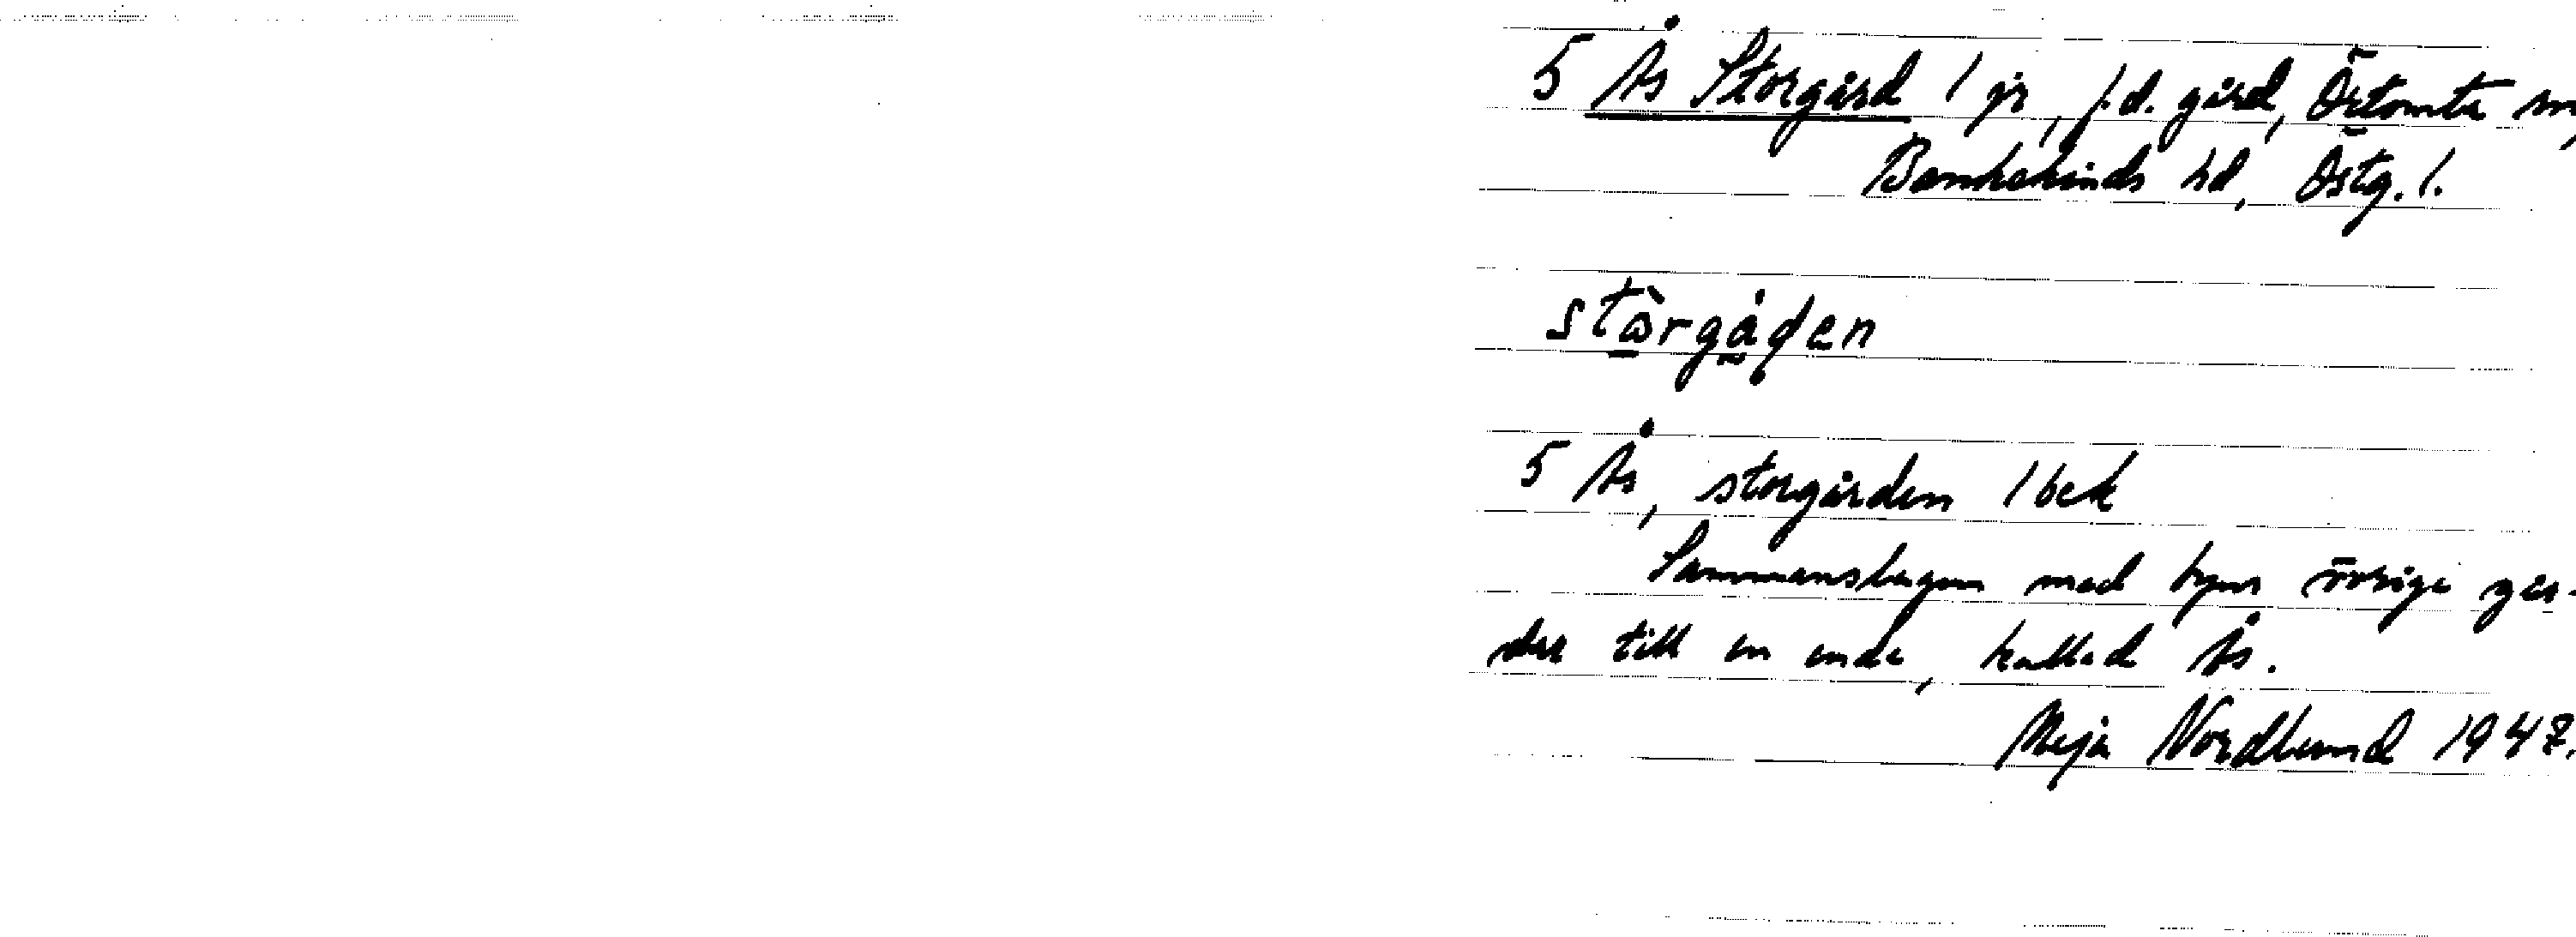 5 Ås Storgård / jr, f.d. gård, Örtomta sn,
Bankekinds hd, Östg. l.
stòrgåden
5 Ås, storgården / bek
Sammanslagen med byns övriga går-
dar till en enda, kallad Ås.
Meja Nordlund 1947.